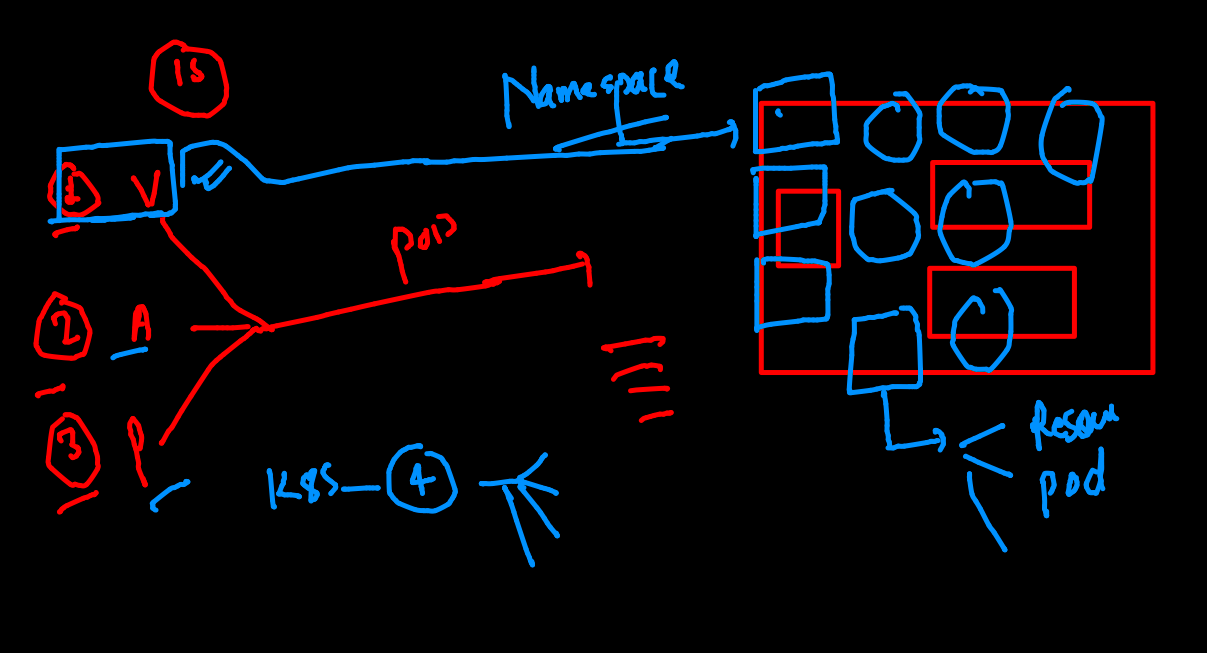 15
Namespace
1 V
pod
2 A
3 P
K8S 4
Resou
pod